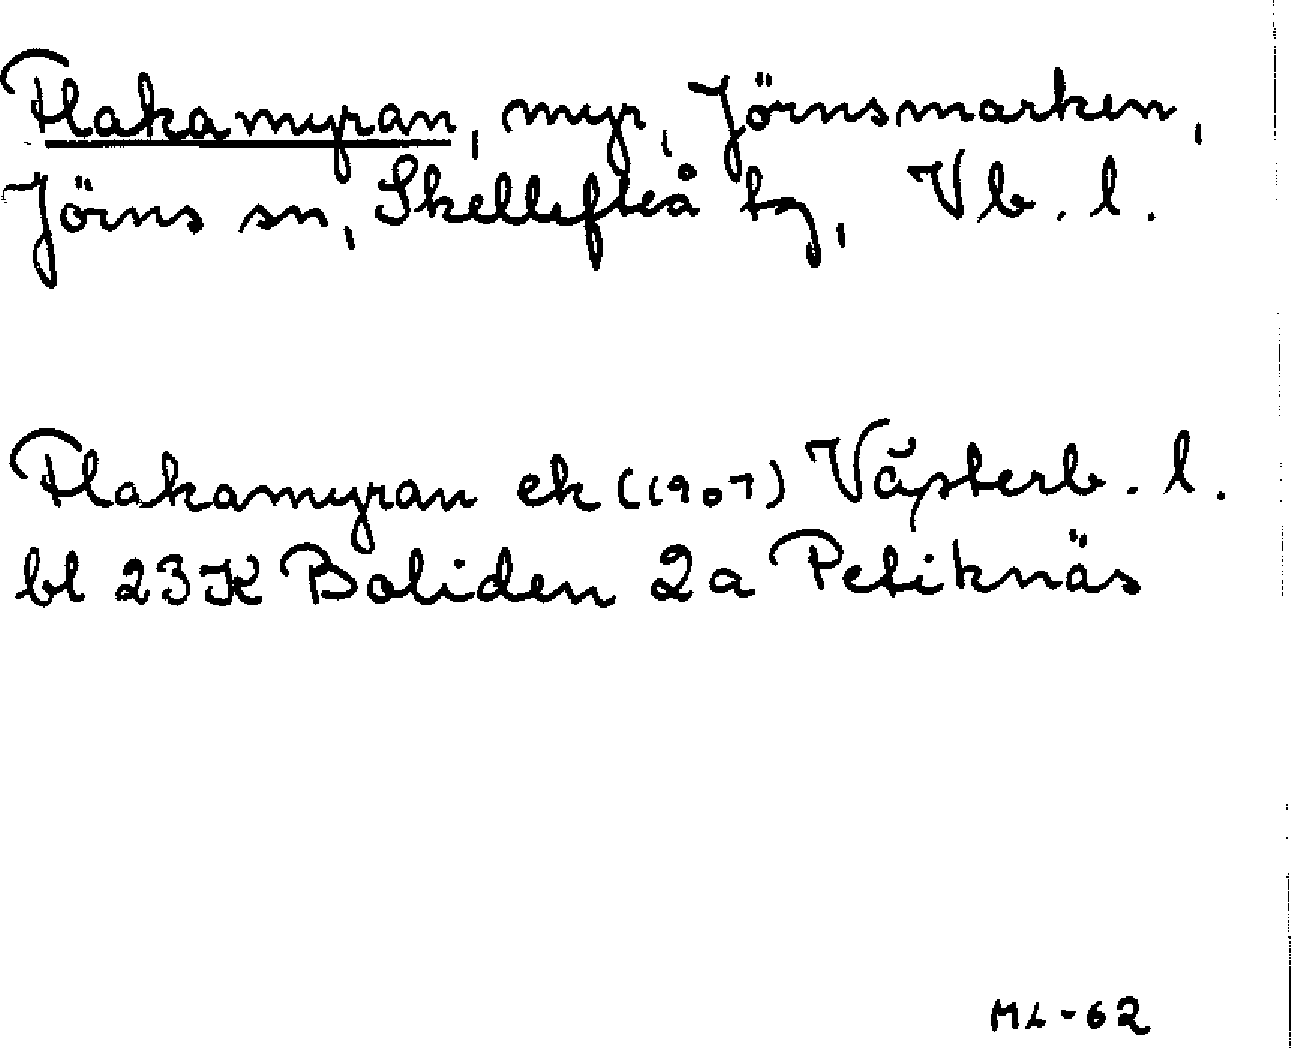 Flakamyran, myr, Jörnsmarken,
Jörns sn, Skellefteå tg, Vb. l.
Flakamyran ek (1907) Västerb. l.
bl 23K Boliden 2a Petiknäs
ML-62